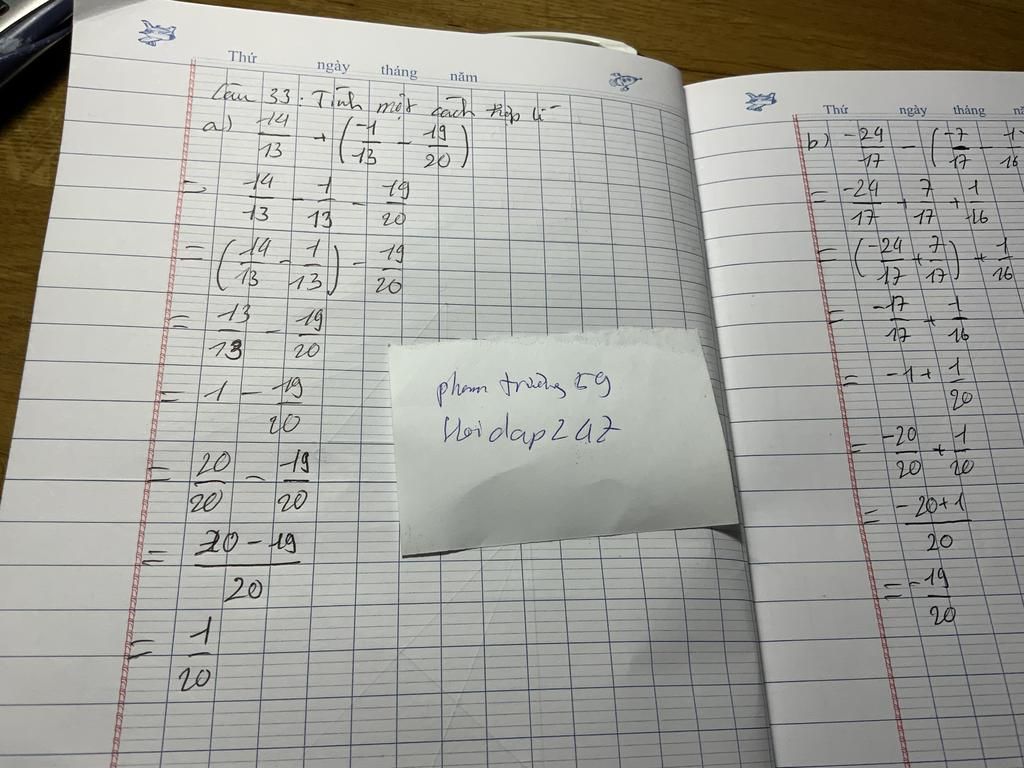 Thứ ngày tháng năm
Câu 33. Tính một cách hợp lí
a) 14/13 + (-1/13 - 19/20)
= 14/13 - 1/13 - 19/20
= (14/13 - 1/13) - 19/20
= 13/13 - 19/20
= 1 - 19/20
= 20/20 - 19/20
= (20 - 19)/20
= 1/20
phạm trường 59
Hoidap247
Thứ ngày tháng
b) -24/17 - (-7/17 - 1/16
= -24/17 + 7/17 + 1/16
= (-24/17 + 7/17) + 1/16
= -17/17 + 1/16
= -1 + 1/20
= -20/20 + 1/20
= (-20+1)/20
= -19/20